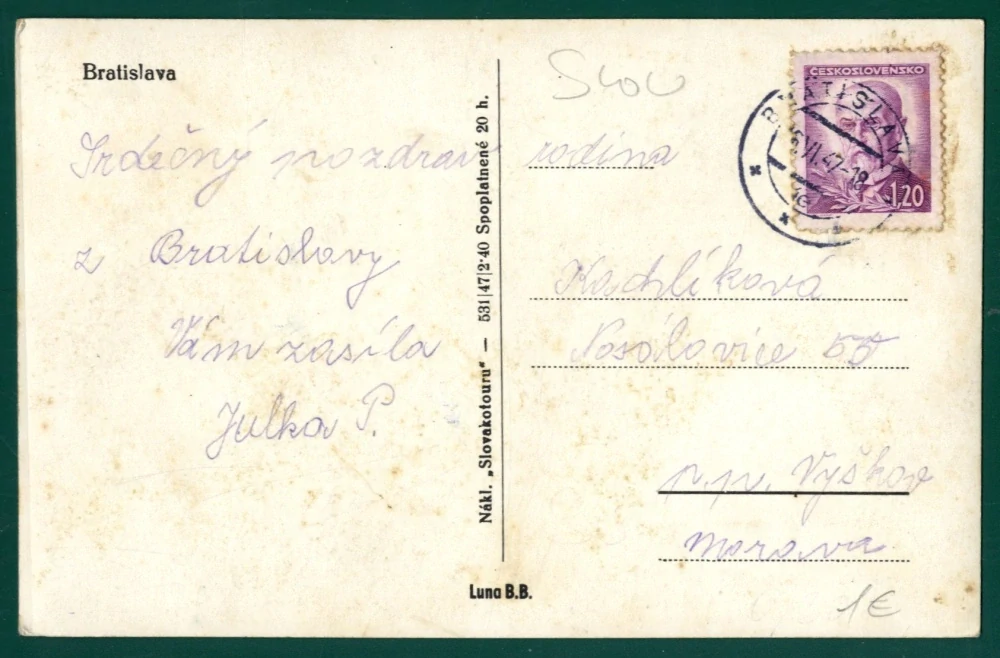 Bratislava
Srdečný pozdrav
z Bratislavy
Vám zasíla
Julka P.
Nákl. „Slovakotouru“ — 531|47|2·40 Spoplatnené 20 h.
Luna B.B.
Slov
ČESKOSLOVENSKO
1,20
BRATISLAVA
VI.47-18
rodina
Kachlíková
Nosálovice 55
p.p. Vyškov
Morava
1€